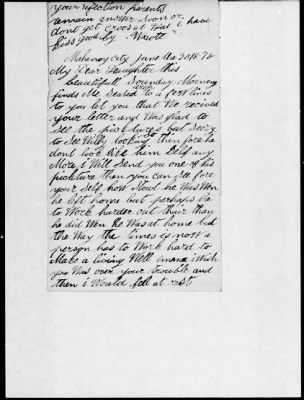 your afection parents
remain answer soon or
dont get cross at What i have
Wrote
Mahanoy City June the 20 1878
My Dear Daughter this
beautifull Sounday Morning
finds Me Seated to a few lines
to you let you that We recived
your letter and Was glad to
See the picktures but Sorry
to See Willy looking thin fore he
dont look like him Self any
More i Will Send you one of his
pickture then you can See fore
your Self how Stout he Was Wen
he left home but perhaps he
to Work harder out thair than
he did Wen he Was at home but
the Way the times is now a
person has to Work hard to
Make a living Well i Wish
you Was over your trouble and
then i Would fell at rest